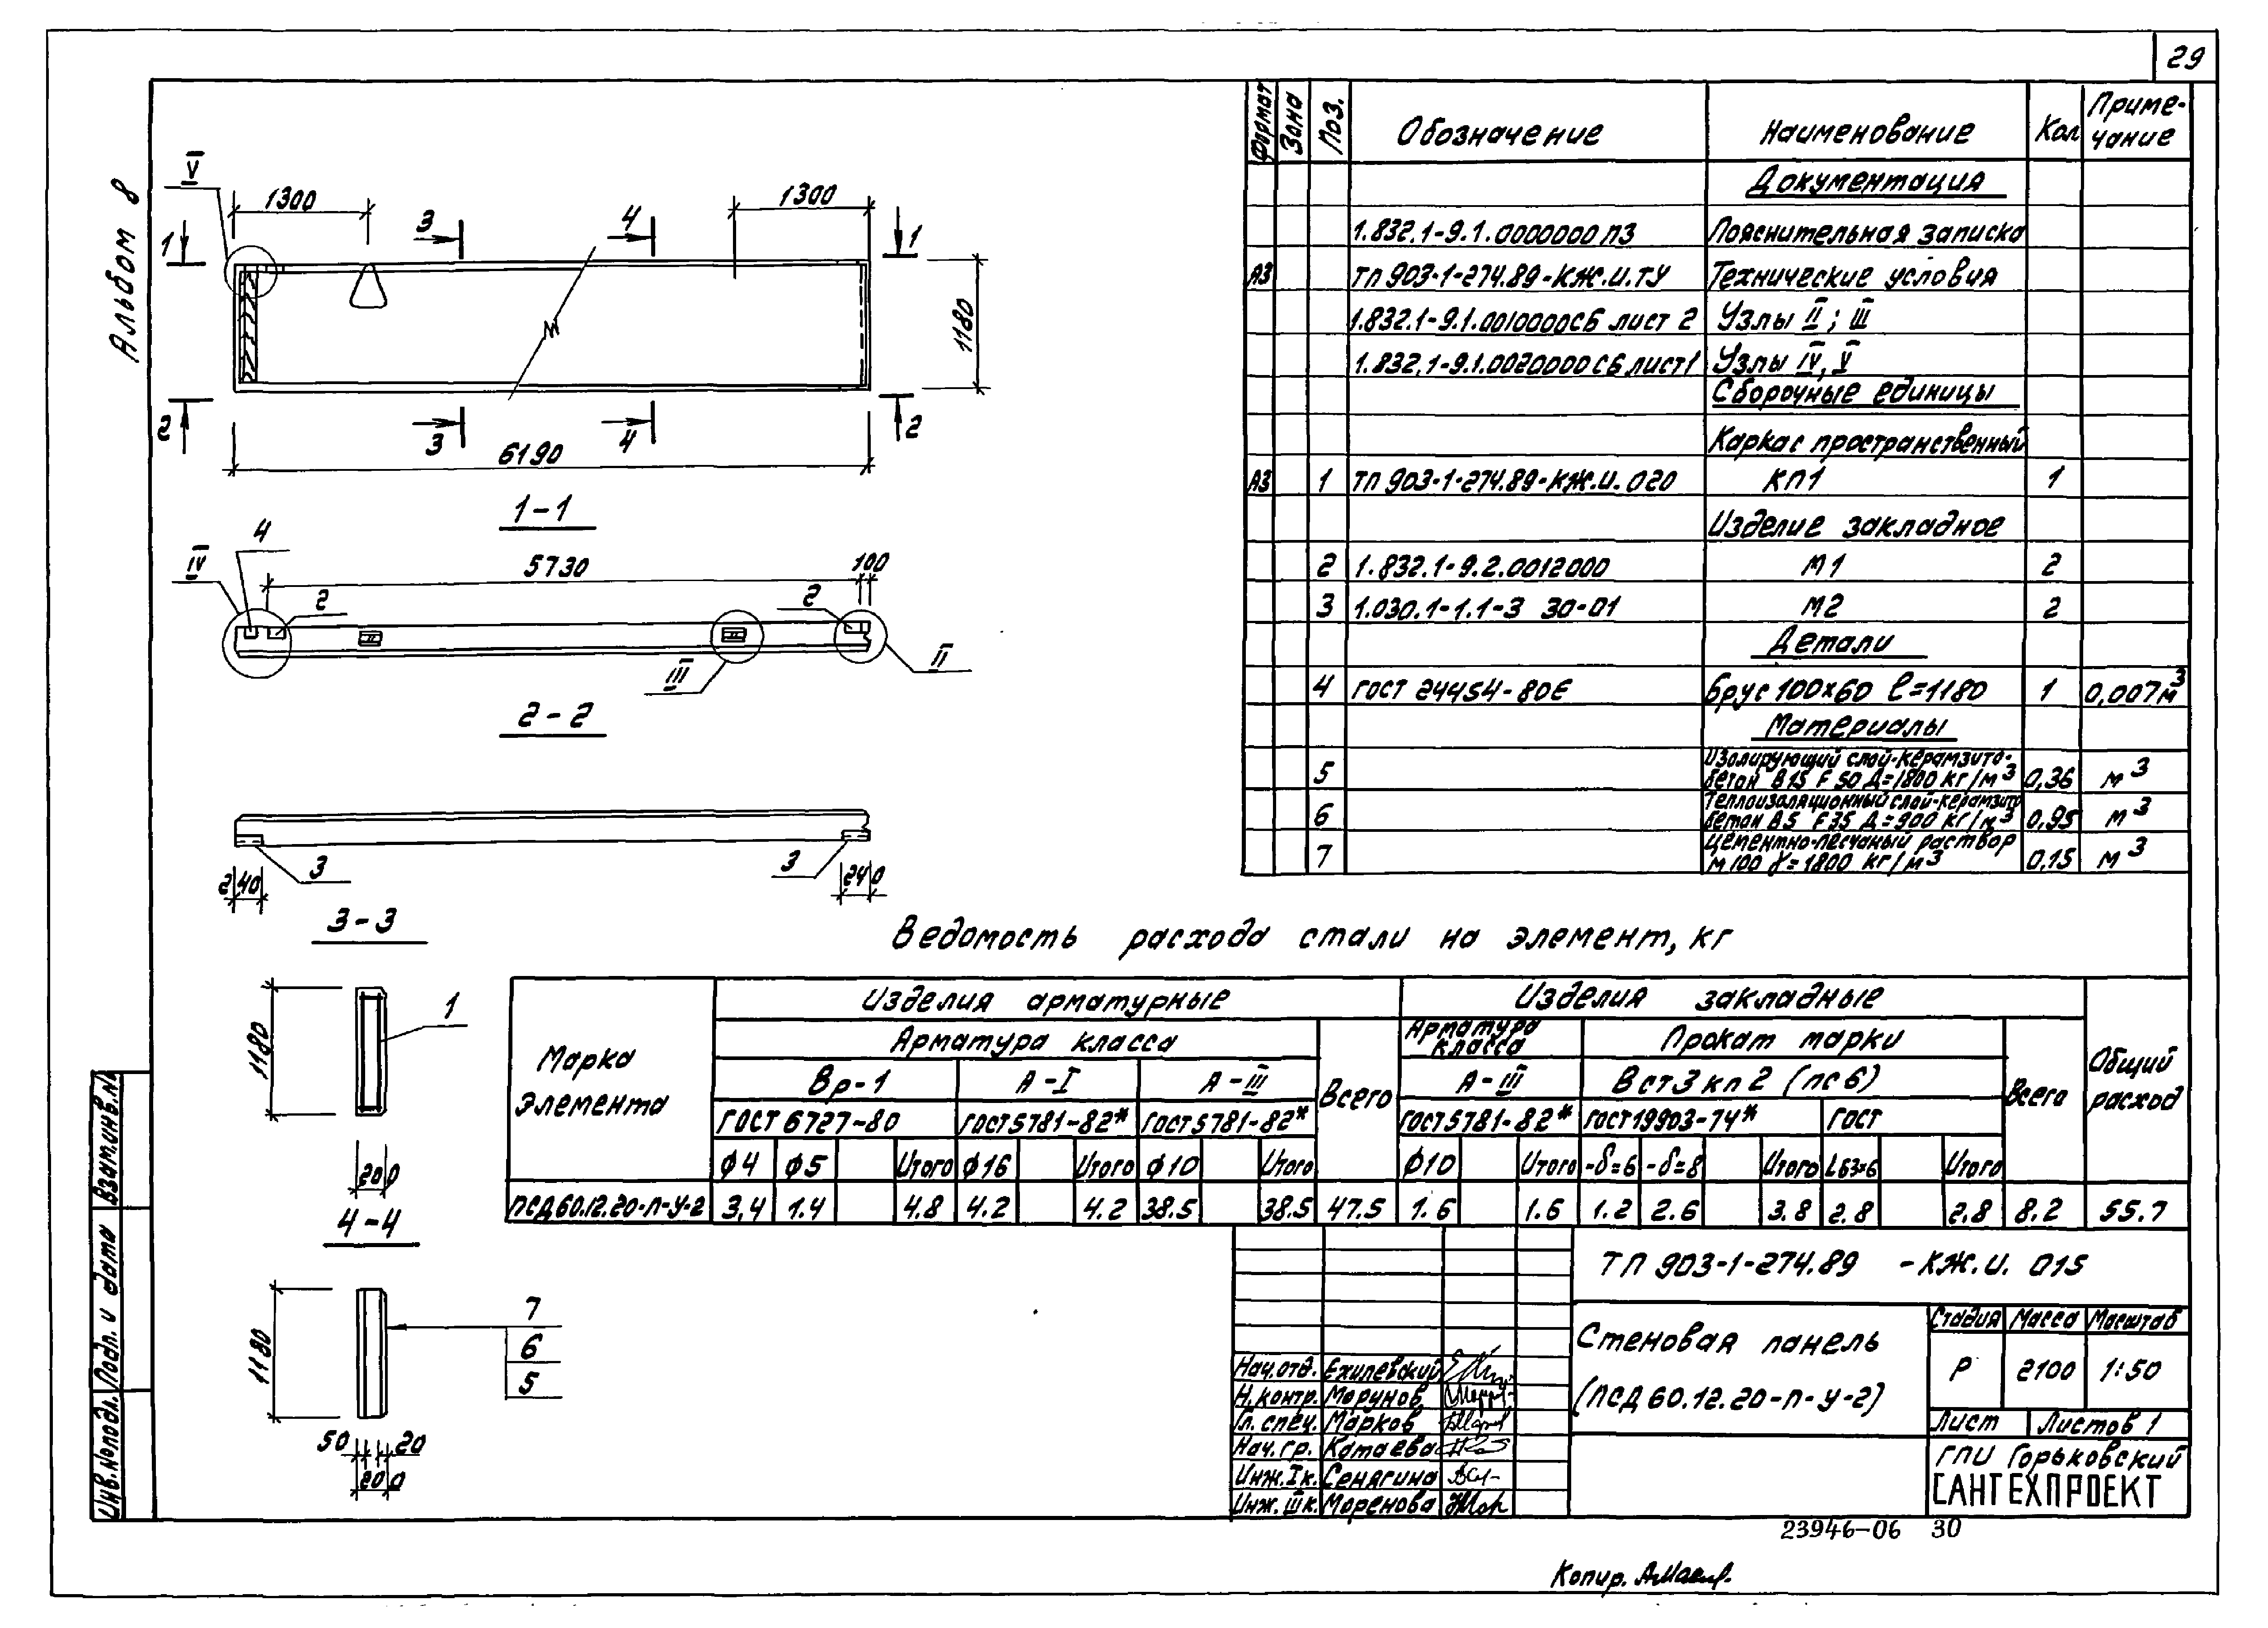 29
Альбом 8
V
1300
1300
3
4
1
1
1180
2
3
4
2
6190
1-1
4
IV
5730
100
2
2
III
II
2-2
3
3
240
240
3-3
1180
1
200
4-4
1180
7
6
5
50
20
200
Формат Зона Поз. Обозначение Наименование Кол Приме-
чание
Документация
1.832.1-9.1.0000000 ПЗ Пояснительная записка
А3 ТП 903-1-274.89-КЖ.И.ТУ Технические условия
1.832.1-9.1.0010000СБ лист 2 Узлы II; III
1.832.1-9.1.0020000СБ лист1 Узлы IV, V
Сборочные единицы
Каркас пространственный
А3 1 ТП 903-1-274.89-КЖ.И. 020 КП1 1
Изделие закладное
2 1.832.1-9.2.0012000 М1 2
3 1.030.1-1.1-3 30-01 М2 2
Детали
4 ГОСТ 24454-80Е Брус 100х60 ℓ=1180 1 0,007м3
Материалы
Изолирующий слой-керамзито-
5 бетон В15 F50 Д=1800 кг/м3 0,36 м3
Теплоизоляционный слой-керамзито
6 бетон В5 F35 Д=900 кг/м3 0,95 м3
Цементно-песчаный раствор
7 М100 γ=1800 кг/м3 0,15 м3
Ведомость расхода стали на элемент, кг
Марка элемента
Изделия арматурные Изделия закладные Общий расход
Арматура класса Всего Арматура класса Прокат марки Всего
Вр-1 А-I А-III А-III ВСт3кп2 (пс6)
ГОСТ 6727-80 ГОСТ5781-82* ГОСТ5781-82* ГОСТ5781-82* ГОСТ19903-74* ГОСТ
ϕ4 ϕ5 Итого ϕ16 Итого ϕ10 Итого ϕ10 Итого -δ=6 -δ=8 Итого L63=6 Итого
ПСД60.12.20-П-У-2 3,4 1.4 4.8 4.2 4.2 38.5 38.5 47.5 1.6 1.6 1.2 2.6 3.8 2.8 2.8 8.2 55.7
ТП 903-1-274.89 -КЖ.И. 015
Стеновая панель
(ПСД 60.12.20-П-У-2)
Стадия Масса Масштаб
Р 2100 1:50
Лист Листов 1
ГПИ Горьковский
САНТЕХПРОЕКТ
Нач.отд. Ехилевский
Н.контр. Морунов
Гл.спец. Марков
Нач.гр. Катаева
Инж.Iк. Сенягина
Инж.IIIк. Моренова
Взам.инв.№
Подп. и дата
Инв.№подл.
23946-06 30
Копир.